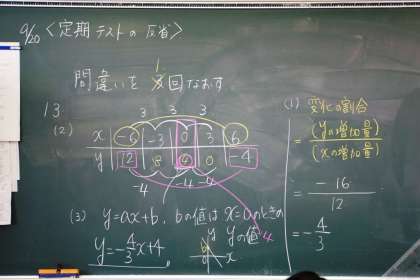 9/20 〈定期テストの反省〉
間違いを1回なおす
13
(2)
3 3 3
x -6 -3 0 3 6
y 12 8 4 0 -4
-4 -4 -4
(3) y=ax+b, bの値はx=0のときの
yの値 4
y=-4/3x+4
y
x
(1) 変化の割合
= (yの増加量)/(xの増加量)
= -16/12
= -4/3